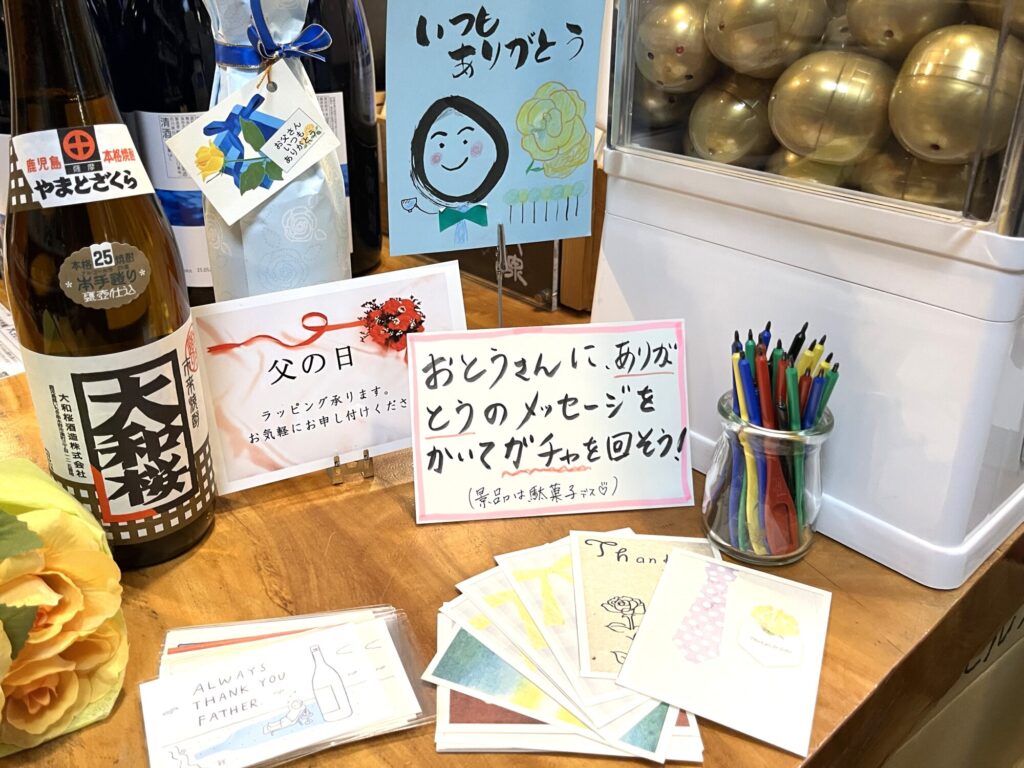 いつも
ありがとう
お父さん
いつも
ありがとう。
清酒
鹿児島
薩摩
本格焼酎
やまとざくら
本格
25
焼酎
本手造り
甕壺仕込
本格焼酎
大和桜
大和桜酒造株式会社
父の日
ラッピング承ります。
お気軽にお申し付けくださ
おとうさんに、ありが
とうのメッセージを
かいてガチャを回そう!
(景品は駄菓子デス♡)
Thank
ALWAYS
THANK YOU
FATHER.